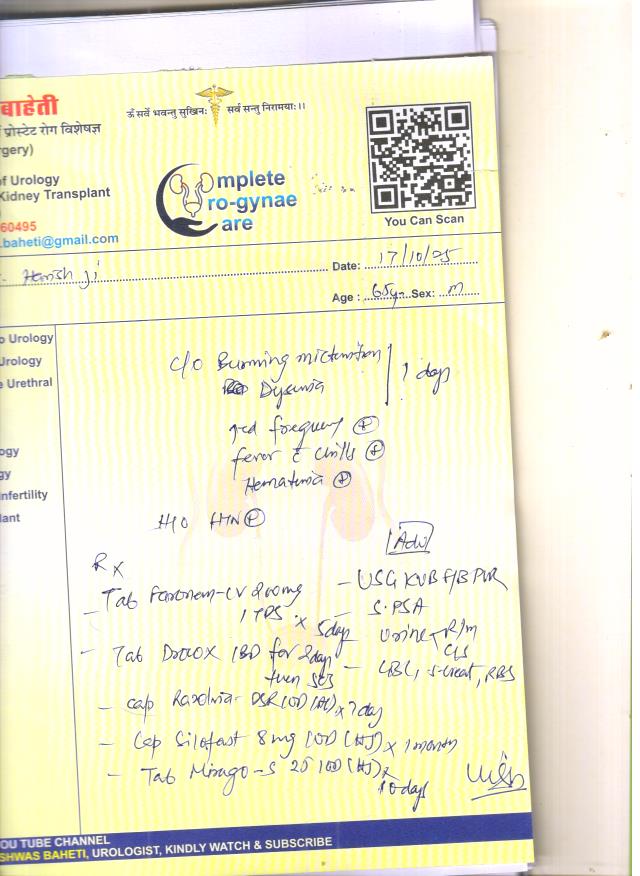 बाहेती
प्रोस्टेट रोग विशेषज्ञ
gery)
of Urology
Kidney Transplant
60495
.baheti@gmail.com
ॐ सर्वे भवन्तु सुखिनः सर्व सन्तु निरामयाः।।
omplete
ro-gynae
are
You Can Scan
Harish Ji
Date: 17/10/25
Age : 65y Sex: M
o Urology
Urology
e Urethral
ogy
gy
nfertility
lant
C/O Burning micturition
Dysuria
days
frequency (+)
fever c chills (+)
Hematuria (+)
H/O HTN (P)
Adv
Rx
- Tab Faronem-CV 200mg
1 TDS x 5day
- Tab 1BD for 2days
then SOS
- Cap DSR 1OD (AC) x 7day
- Cap Silofast 8mg 1OD (HS) x 1 month
- Tab Mirago-S 25 1OD (HS) x
10 days
- USG KUB F/B PVR
- S.PSA
Urine - R/m
C/S
- CBC, S-creat, RBS
OU TUBE CHANNEL
SHWAS BAHETI, UROLOGIST, KINDLY WATCH & SUBSCRIBE